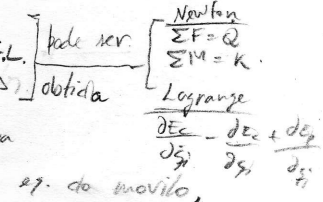 .L. ] pode ser [ Newton
obtida
ΣF = Q
ΣM = K.
Lagrange
∂Ec/∂q̇i - ∂Ec/∂qi + ∂Ep/∂qi
eq. do movito,